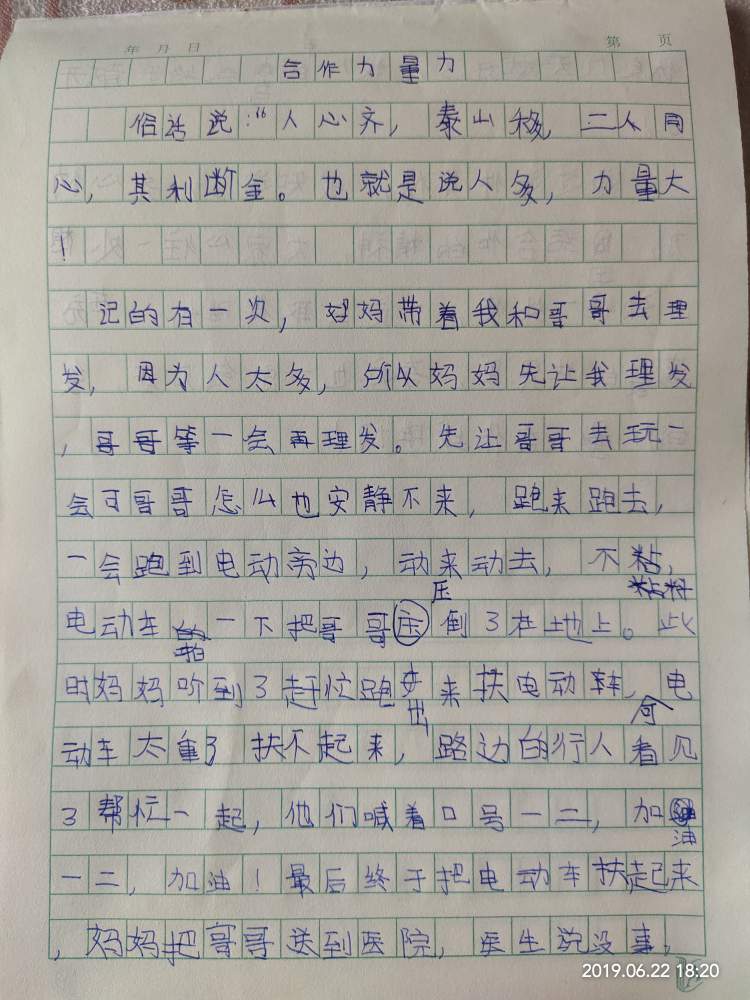 年 月 日 第 页
合作力量力
俗话说:“人心齐,泰山移,二人同
心,其利断金。也就是说人多,力量大
!
记的有一次,妈妈带着我和哥哥去理
发,因为人太多,所以妈妈先让我理发
,哥哥等一会再理发。先让哥哥去玩一
会可哥哥怎么也安静不来,跑来跑去,
一会跑到电动旁边,动来动去,不料,
电动车一下把哥哥压倒了在地上。此
时妈妈听到了赶忙跑出来扶电动车,电
动车太重了扶不起来,路边的行人看见
了帮忙一起,他们喊着口号一二,加油
一二,加油!最后终于把电动车扶起来
,妈妈把哥哥送到医院,医生说没事,
2019.06.22 18:20